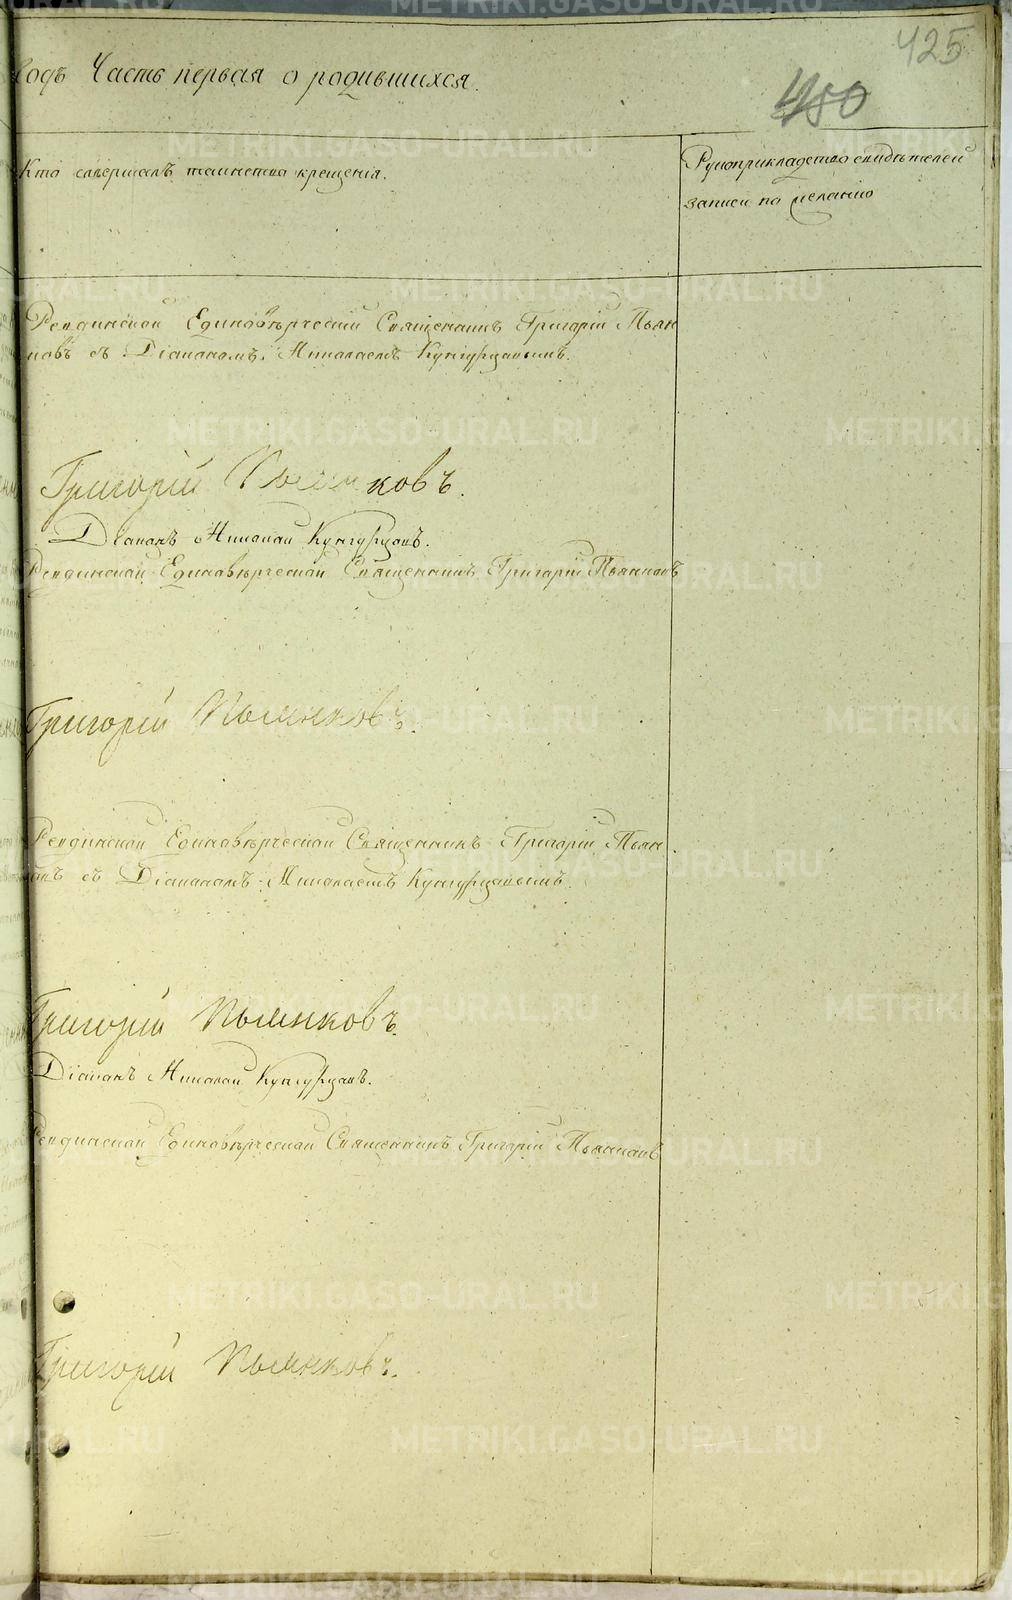 425
450
годъ Часть первая о родившихся.
Кто совершалъ таинство крещенія.
Рукоприкладство свидѣтелей
записи по желанію
Ревдинской Единовѣрческій Священникъ Григорій Пьян
ковъ съ Діакономъ Николаемъ Кунгурцовымъ.
Григорій Пьянковъ.
Діаконъ Николай Кунгурцовъ.
Ревдинской Единовѣрческой Священникъ Григорій Пьянковъ
Григорій Пьянковъ.
Ревдинской Единовѣрческой Священникъ Григорій Пьян
ковъ съ Діакономъ Николаемъ Кунгурцовымъ.
Григорій Пьянковъ.
Діаконъ Николай Кунгурцовъ.
Ревдинской Единовѣрческой Священникъ Григорій Пьянковъ
Григорій Пьянковъ.
METRIKI.GASO-URAL.RU